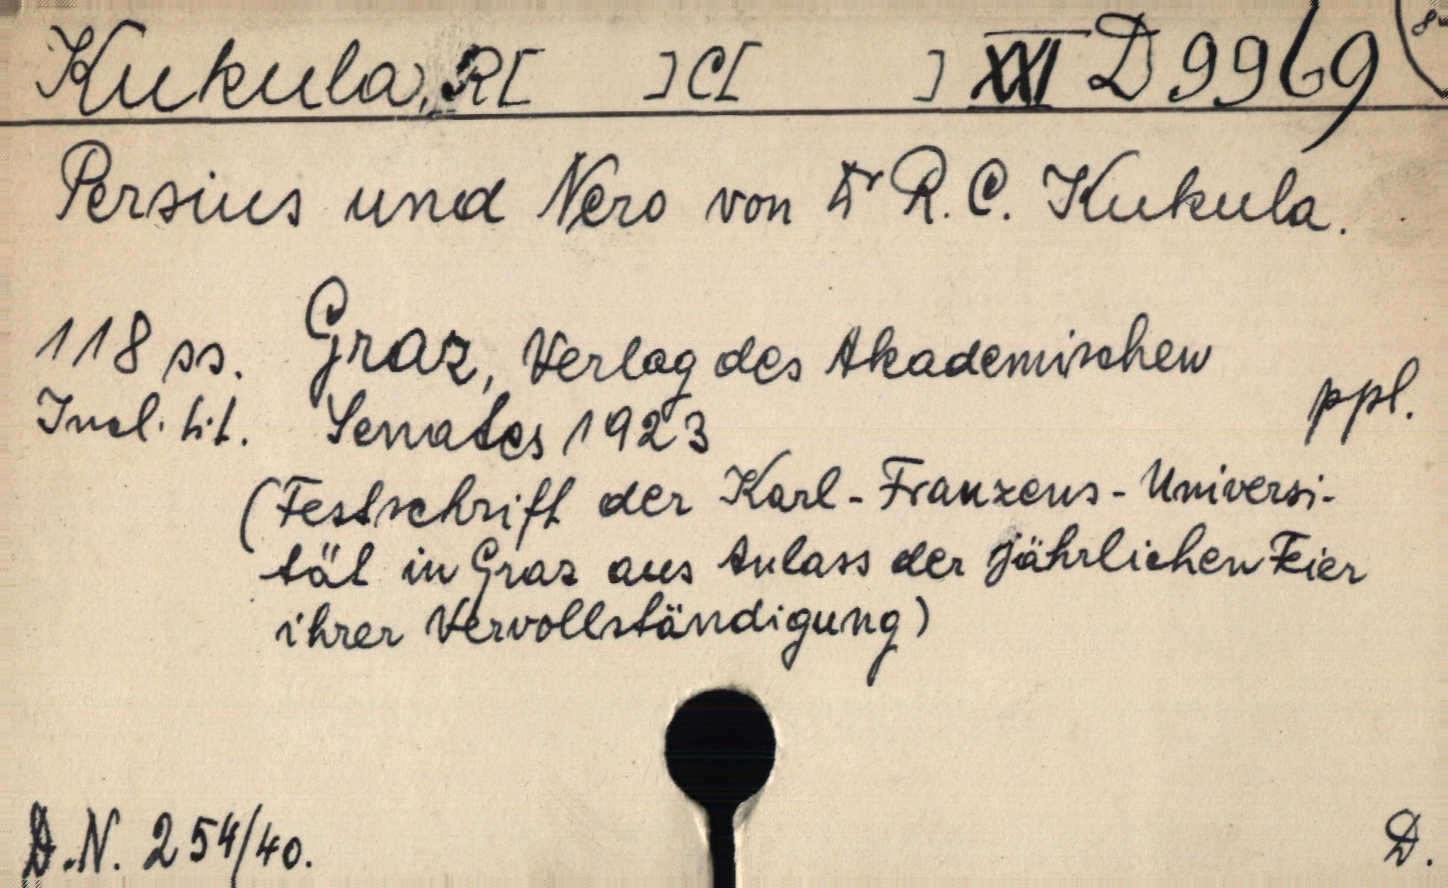 Kukula, R[ ]C[ ] XXI D 9969
8°
Persius und Nero von Dr R. C. Kukula.
118 ss. Graz, Verlag des Akademischen
Incl. tit. Senates 1923 ppl.
(Festschrift der Karl-Franzens-Universi-
tät in Graz aus Anlass der jährlichen Feier
ihrer Vervollständigung)
D.N. 254/40. D.